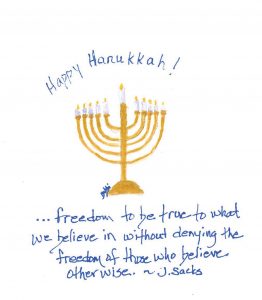 Happy Hanukkah!
... freedom to be true to what
we believe in without denying the
freedom of those who believe
otherwise. ~ J. Sacks